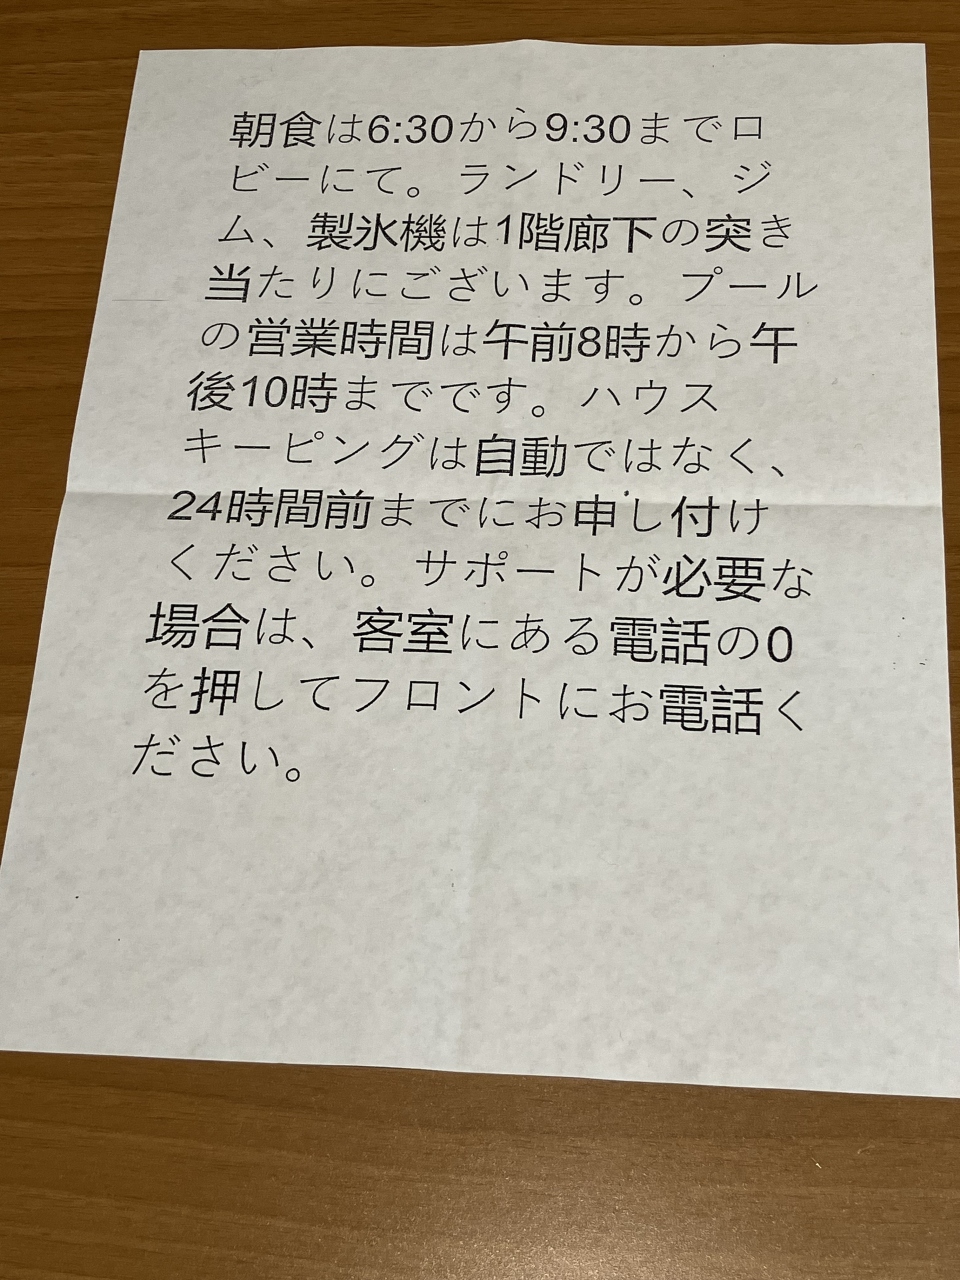 朝食は6:30から9:30までロ
ビーにて。ランドリー、ジ
ム、製氷機は1階廊下の突き
当たりにございます。プール
の営業時間は午前8時から午
後10時までです。ハウス
キーピングは自動ではなく、
24時間前までにお申し付け
ください。サポートが必要な
場合は、客室にある電話の0
を押してフロントにお電話く
ださい。